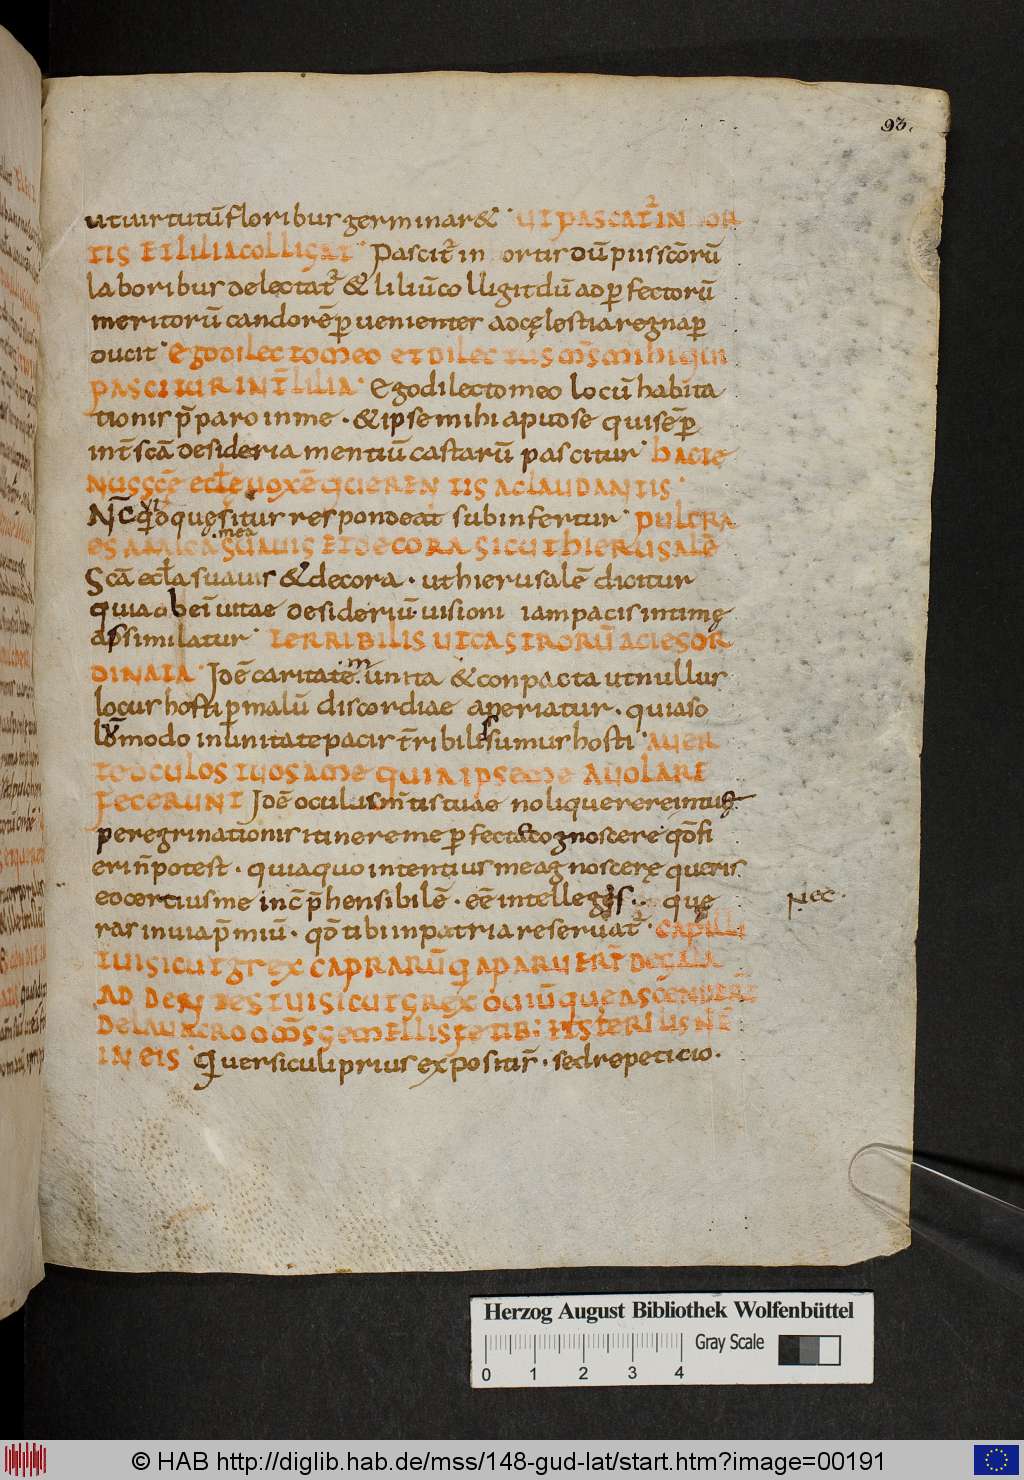 93.
utuirtutū floribus germinar& · UT PASCAT̄ IN OR
TIS ET LILIA COLLIGAT · Pascit̄ in ortis dū piis scōrū
laboribus delectat̄ & liliū colligit dū ad ꝑfectorū
meritorū candorē ꝑueniens ad cęlestia regna ꝑ
ducit · EGO DILECTO MEO ET DILECTUS MS̄ MIHI QUI
PASCITUR INT̄ LILIA · Ego dilecto meo locū habita
tionis p̄paro in me · & ipse mihi apud se qui sēꝑ
int̄ scā desideria mentiū castarū pascitur ·
NUS SCĒ ECLE UOXĒ QUERENTIS AC LAUDANTIS ·
Nc̄ quid quęsitur respondeat subinfertur · PULCRA
mea
ES AMICA SUAUIS ET DECORA SICUT HIERUSALĒ
Scā eccła suauis & decora · ut hierusalē dicitur
quia abei uitae desideriū uisioni iam pacis intimę
assimilatur · TERRIBILIS UT CASTRORŪ ACIES OR
DINATA · Idē caritatem unita & conpacta ut nullus
locus hosti ꝑ malū discordiae aperiatur · quia so
lōmodo in unitate pacis t̄ribiles sumus hosti · AUER
TE OCULOS TUOS A ME QUIA IPSE ME AUOLARE
FECERUNT Idē oculus m̄tis tuae noli querere in tuę
peregrinationis itinere me ꝑfecte cognoscere qd̄ fi
eri n̄ potest · quia quo intentius me agnoscerę queris
eo certius me inc̄p̄hensibilē · eē intelleges · · quę
Nec ·
ras in uia p̄miū · qd̄ tibi in patria reseruat̄ · CAPILLI
TUI SICUT GREX CAPRARŪ Q̄ APARUERT̄ DE GALA
AD DENTES TUI SICUT GREX OUIŪ QUE ASCENDERE
DE LAUACRO OM̄S GEMELLIS FETIB; ET STERILIS N̄ Ē
IN EIS · Qui uersiculi prius expositi s̄ · sed repeticio ·
Herzog August Bibliothek Wolfenbüttel
Gray Scale
0 1 2 3 4
© HAB http://diglib.hab.de/mss/148-gud-lat/start.htm?image=00191